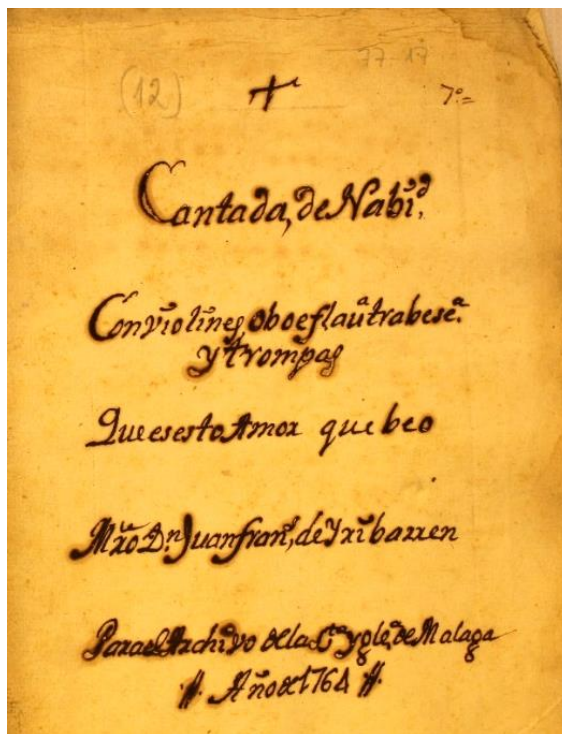 (12) 77-17
7º=
Cantada, de Nabi.ᵈ
Con violines, oboe flauᵃ trabeseᵃ.
y trompas
Que es esto Amor que beo
Mr̃o Dⁿ Juan franᶜ, de Yribarren
Para el Archivo de la Sᵗᵃ ygleᵃ de Malaga
//. Año de 1764 //.